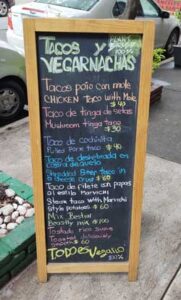 TACOS Y
VEGARNACHAS
Tacos pollo con mole
CHICKEN Taco with Mole
$40
Taco de tinga de setas
Mushroom tinga taco
$30
Taco de cochinita
Pulled Pork taco $40
Taco de deshebrada en
costra de queso
Shredded Beef taco in
a cheese crust $60
Taco de filete con papas
al estilo Mariachi
Steak taco with Mariachi
style potatoes $60
Mix Bestial
Beastly mix $100
Tostada
Toasted
$60
TODO ES Vegano
100%